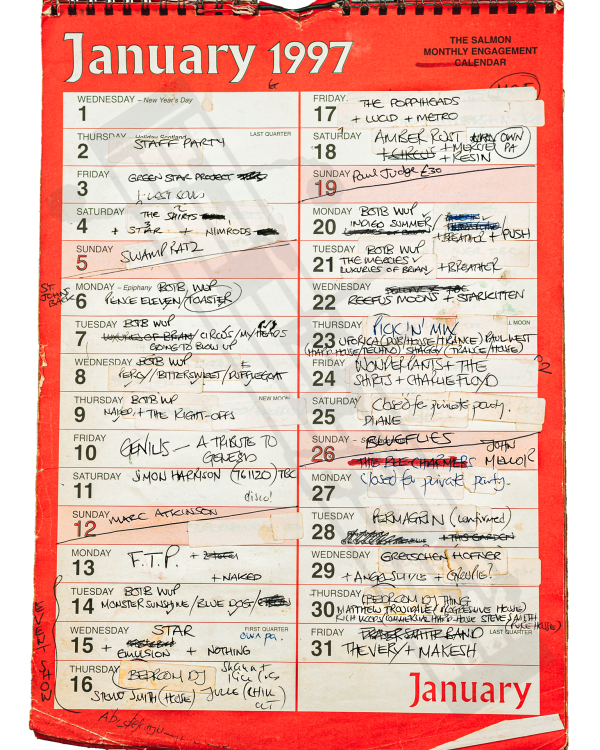 January 1997
THE SALMON
MONTHLY ENGAGEMENT
CALENDAR
WEDNESDAY – New Year's Day
1
THURSDAY – Holiday Scotland
LAST QUARTER
2
STAFF PARTY
FRIDAY
3
GREEN STAR PROJECT
SATURDAY
4
THE SHIRTS
+ STAR + NIMRODS
SUNDAY
5
SWAMP RATZ
ST JOHNS BACK
MONDAY – Epiphany
6
BOTB WUP
PENCE ELEVEN/TOASTER
TUESDAY
7
BOTB WUP
LUXURIES OF BRIAN/CIRCUS/MY HEADS
GOING TO BLOW UP
WEDNESDAY
8
BOTB WUP
PERCY//BITTERSWEET/DUFFLECOAT
THURSDAY
NEW MOON
9
BOTB WUP
NAKED + THE RIGHT-OFFS
FRIDAY
10
GENIUS – A TRIBUTE TO
GENESIS
SATURDAY
11
SIMON HARRISON (761120) TBC
disco!
SUNDAY
12
MARC ATKINSON
MONDAY
13
F.T.P. +
+ NAKED
TUESDAY
14
BOTB WUP
MONSTER SUNSHINE/BLUE DOG/
EVENT SHOW
WEDNESDAY
FIRST QUARTER
15
STAR
own pa.
+ EMULSION + NOTHING
THURSDAY
16
BEDROOM DJ
STEVE SMITH (HOUSE)
FRIDAY
17
THE POPPYHEADS
+ LUCID + METRO
SATURDAY
18
AMBER RUST
OWN PA
+ CIRCUS + MERCIE
+ RESIN
SUNDAY
19
Paul Judge £30
MONDAY
20
BOTB WUP
INDIGO SUMMER/
+ BREATHER + PUSH
TUESDAY
21
BOTB WUP
THE MERCIES V
LUXURIES OF BRIAN + BREATHER
WEDNESDAY
22
REEFUS MOONS + STARKITTEN
THURSDAY
L MOON
23
PICK 'N' MIX
UFORICA (DUB/HOUSE/TRANCE) PAUL WEST
(HARD HOUSE/TECHNO) SHAGGY (TRANCE/HOUSE)
FRIDAY
24
WONDERPANTS + THE
SHIRTS + CHARLIE FLOYD
SATURDAY
25
Closed for private party.
DIANE
SUNDAY
26
BLUEFLIES
THE BEE CHARMERS
JOHN
MONDAY
27
Closed for private party.
TUESDAY
28
PERMAGRIN (confirmed)
+ THIS GARDEN
WEDNESDAY
29
GRETSCHEN HOFNER
THURSDAY
30
BEDROOM DJ THING
FRIDAY
LAST QUARTER
31
FRASER SMITH BAND
THE VERY + MAKESH
January